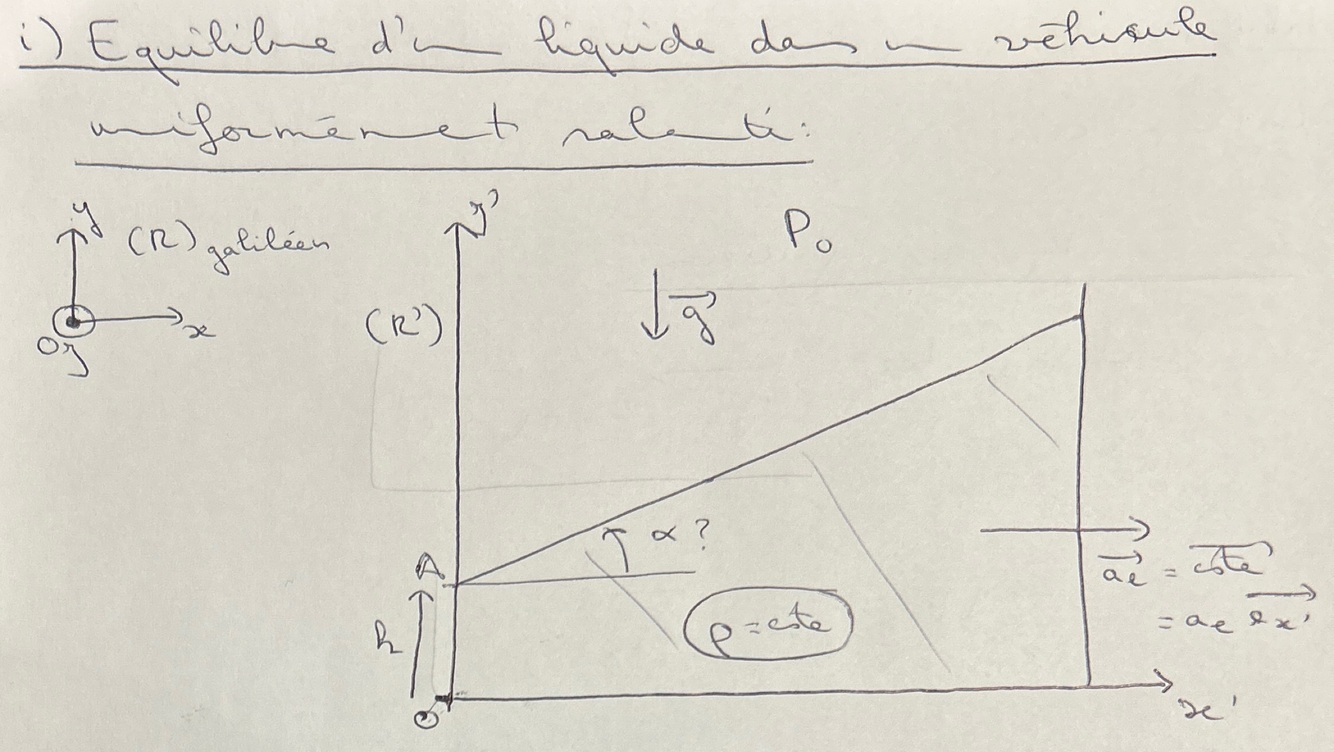 i) Equilibre d'un liquide dans un véhicule
uniformément ralenti:
y
(R) galiléen
x
Oz
y'
(R')
P₀
g⃗
A
α?
h
ρ = cste
a⃗e = cste
= ae ex'
O
x'